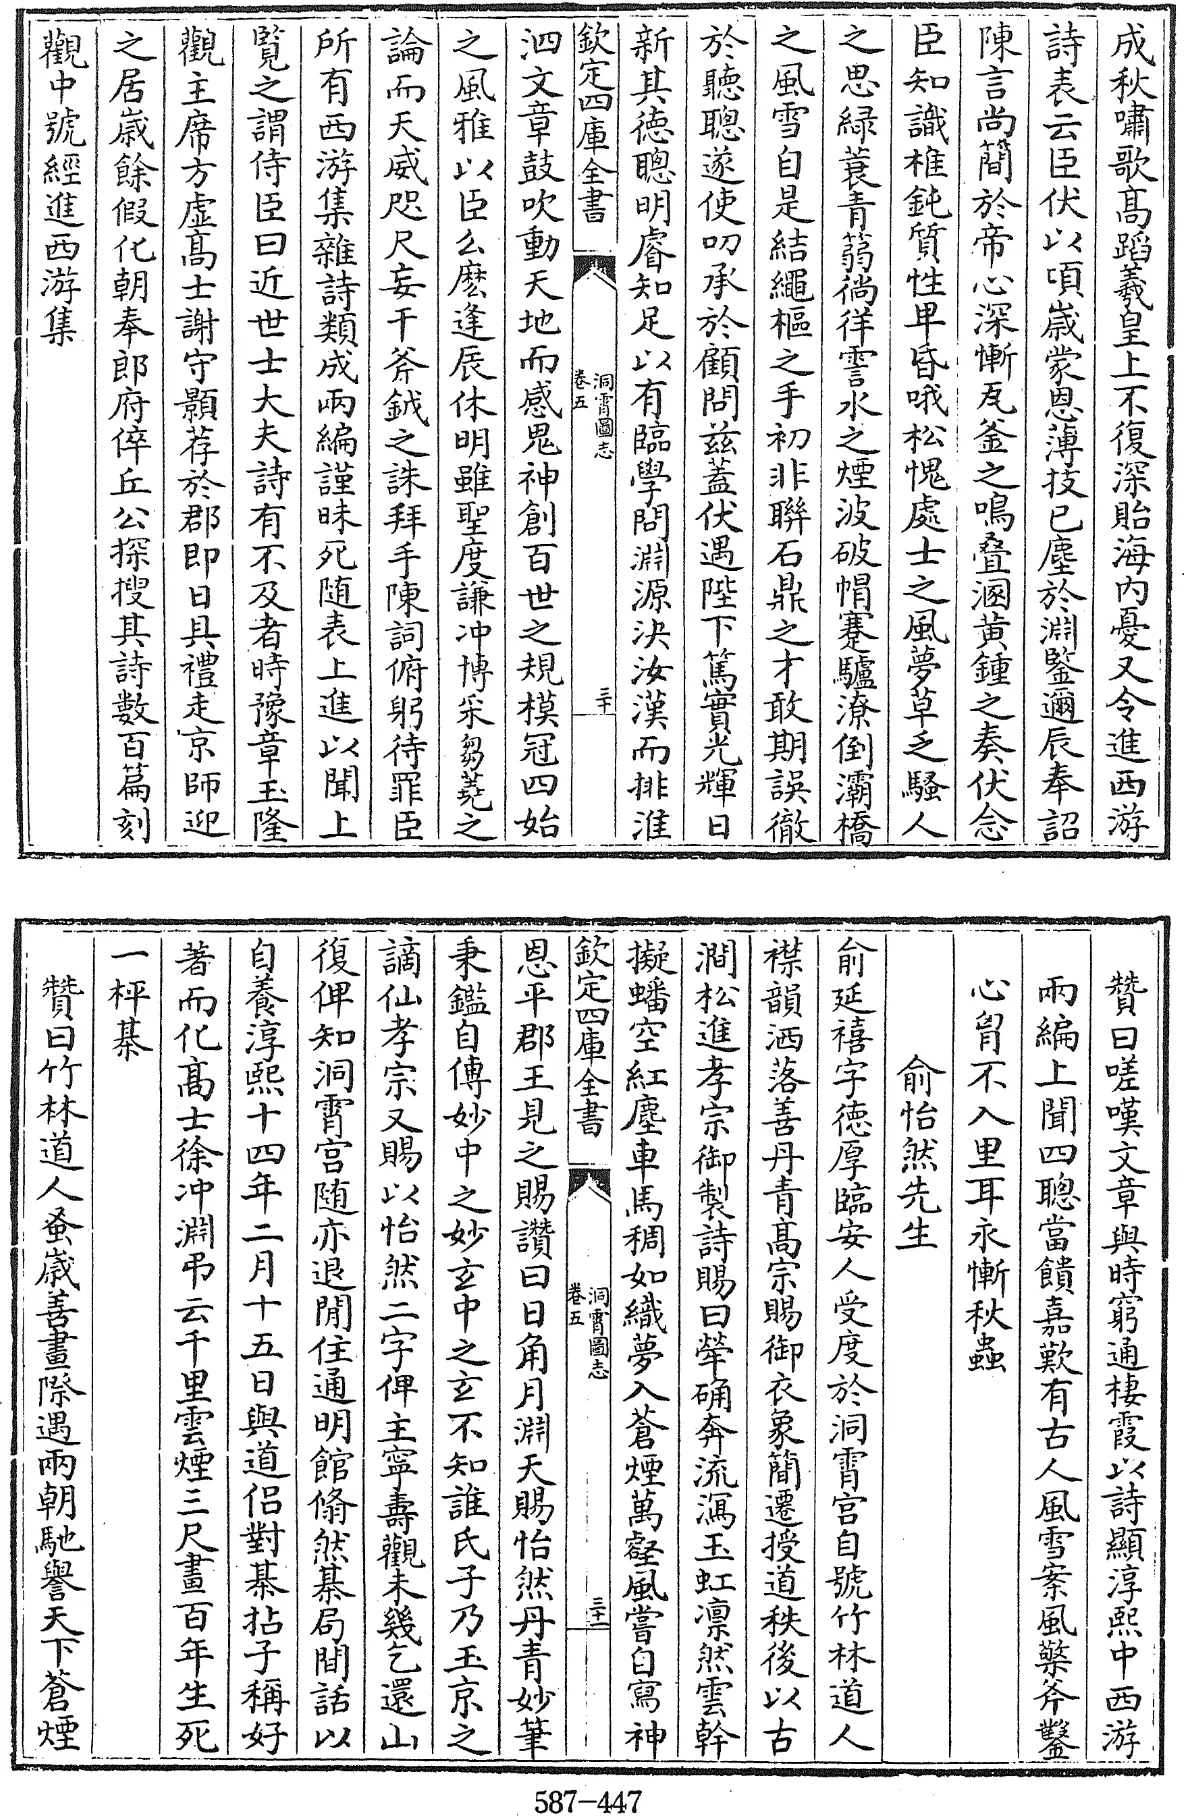 成秋嘯歌高蹈羲皇上不復深貽海内憂又令進西游
詩表云臣伏以頃歲蒙恩薄技已塵於淵鑒邇辰奉詔
陳言尚簡於帝心深慚瓦釜之鳴叠溷黄鍾之奏伏念
臣知識椎鈍質性卑昏哦松愧處士之風夢草乏騷人
之思緑蓑青蒻徜徉霅水之煙波破帽蹇驢潦倒灞橋
之風雪自是結繩樞之手初非聯石鼎之才敢期誤徹
於聽聰遂使叨承於顧問兹蓋伏遇陛下篤實光輝日
新其德聰明睿知足以有臨學問淵源決汝漢而排淮
欽定四庫全書
洞霄圖志
卷五
三十
泗文章鼓吹動天地而感鬼神創百世之規模冠四始
之風雅以臣么麽逢辰休明雖聖度謙冲博采芻蕘之
論而天威咫尺妄干斧鉞之誅拜手陳詞俯躬待罪臣
所有西游集雜詩類成兩編謹昧死随表上進以聞上
覧之謂侍臣曰近世士大夫詩有不及者時豫章玉隆
觀主席方虚高士謝守顥荐於郡即日具禮走京師迎
之居歲餘假化朝奉郎府倅丘公探搜其詩數百篇刻
觀中號經進西游集
贊曰嗟嘆文章與時窮通棲霞以詩顯淳熙中西游
兩編上聞四聰當饋嘉歎有古人風雪案風檠斧鑿
心胷不入里耳永慚秋蟲
俞怡然先生
俞延禧字德厚臨安人受度於洞霄宫自號竹林道人
襟韻洒落善丹青高宗賜御衣象簡遷授道秩後以古
澗松進孝宗御製詩賜曰犖确奔流瀉玉虹凛然雲幹
擬蟠空紅塵車馬稠如織夢入蒼煙萬壑風嘗自寫神
欽定四庫全書
洞霄圖志
卷五
三十一
恩平郡王見之賜讚曰日角月淵天賜怡然丹青妙筆
秉鑑自傳妙中之妙玄中之玄不知誰氏子乃玉京之
謫仙孝宗又賜以怡然二字俾主寧壽觀未幾乞還山
復俾知洞霄宫随亦退閒住通明館翛然棊局間話以
自養淳熙十四年二月十五日與道侣對棊拈子稱好
著而化高士徐冲淵弔云千里雲煙三尺畫百年生死
一枰棊
贊曰竹林道人蚤歲善畫際遇兩朝馳譽天下蒼煙
587-447